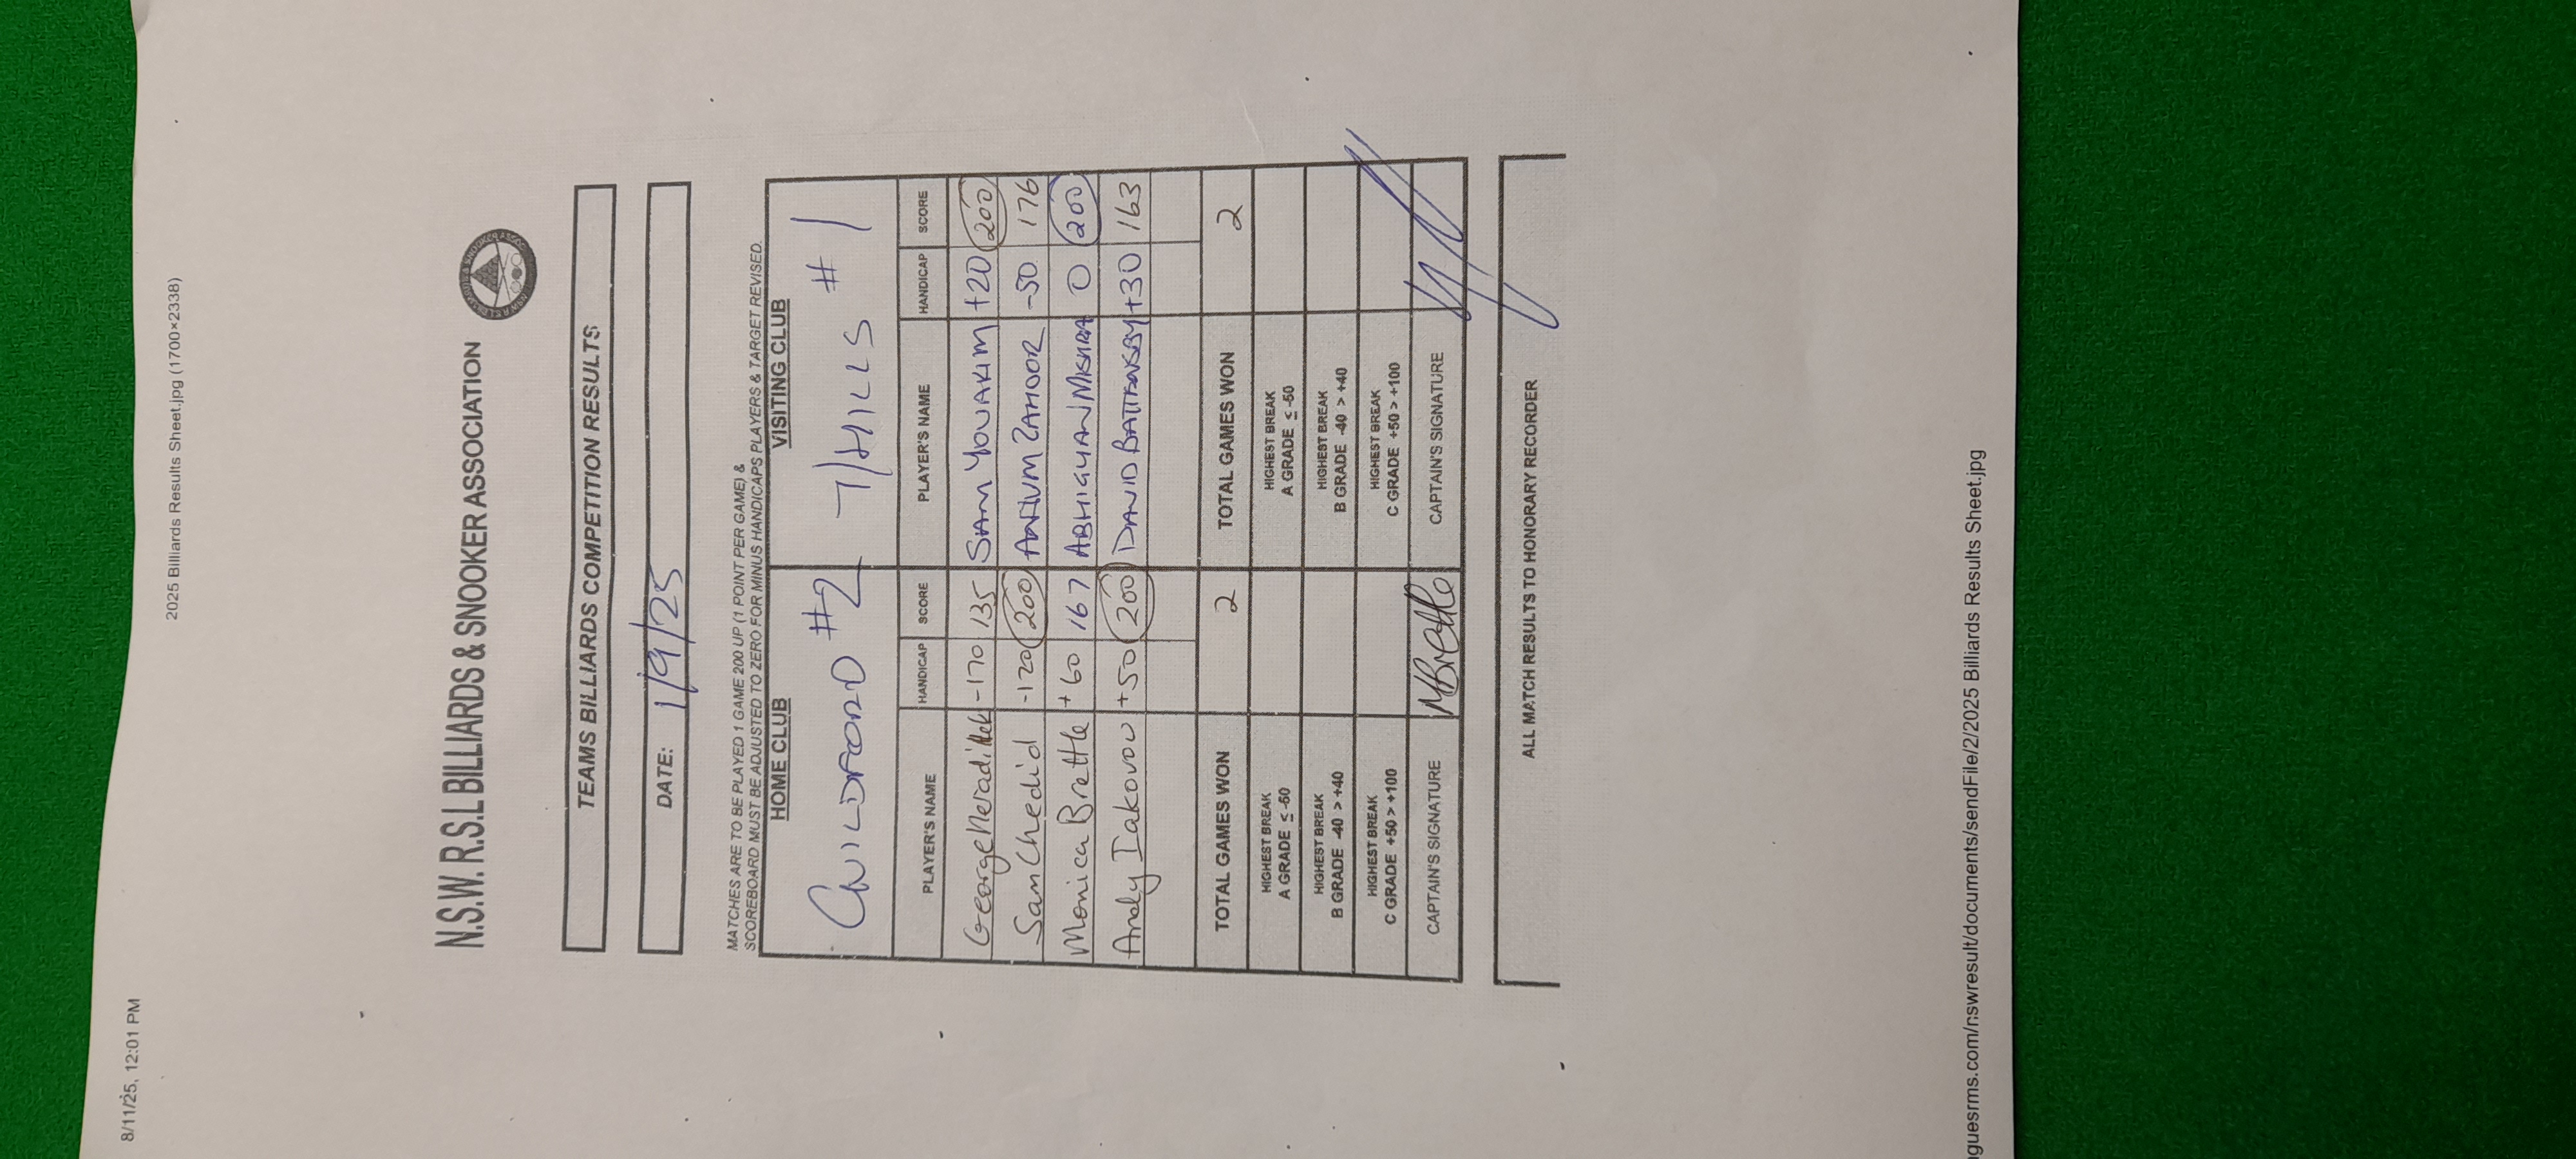 8/11/25, 12:01 PM
2025 Billiards Results Sheet.jpg (1700×2338)
N.S.W. R.S.L BILLIARDS & SNOOKER ASSOCIATION
TEAMS BILLIARDS COMPETITION RESULTS
DATE: 1/9/25
MATCHES ARE TO BE PLAYED 1 GAME 200 UP (1 POINT PER GAME) &
SCOREBOARD MUST BE ADJUSTED TO ZERO FOR MINUS HANDICAPS PLAYERS & TARGET REVISED.
HOME CLUB VISITING CLUB
GUILDFORD #2 7/HILLS # 1
PLAYER'S NAME HANDICAP SCORE PLAYER'S NAME HANDICAP SCORE
George -170 135 SAM YOUAKIM +20 200
Sam Chedid -120 200 ZAHOOR -50 176
Monica Brettle +60 167 ABHIGYAN MISHRA 0 200
Andy Iakovou +50 200 DAVID +30 163
TOTAL GAMES WON 2 TOTAL GAMES WON 2
HIGHEST BREAK
A GRADE ≤ -50
HIGHEST BREAK
A GRADE ≤ -50
HIGHEST BREAK
B GRADE -40 > +40
HIGHEST BREAK
B GRADE -40 > +40
HIGHEST BREAK
C GRADE +50 > +100
HIGHEST BREAK
C GRADE +50 > +100
CAPTAIN'S SIGNATURE MBrettle CAPTAIN'S SIGNATURE
ALL MATCH RESULTS TO HONORARY RECORDER
guesrms.com/nswresult/documents/sendFile/2/2025 Billiards Results Sheet.jpg